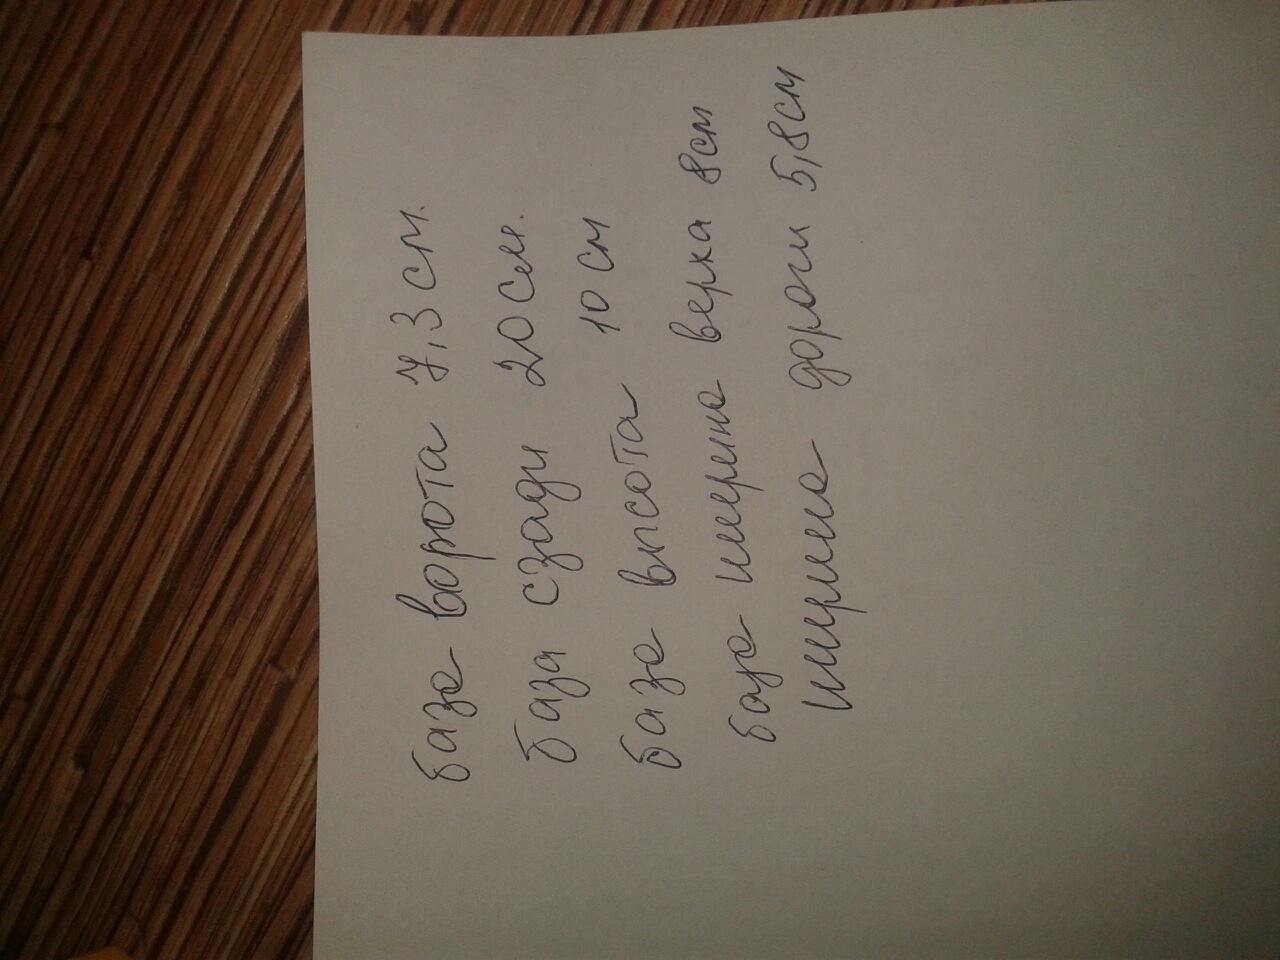 база ворота 7,3 см.
база сзади 20 см.
база высота 10 см
база ширина верха 8см
ширина дороги 5,8см